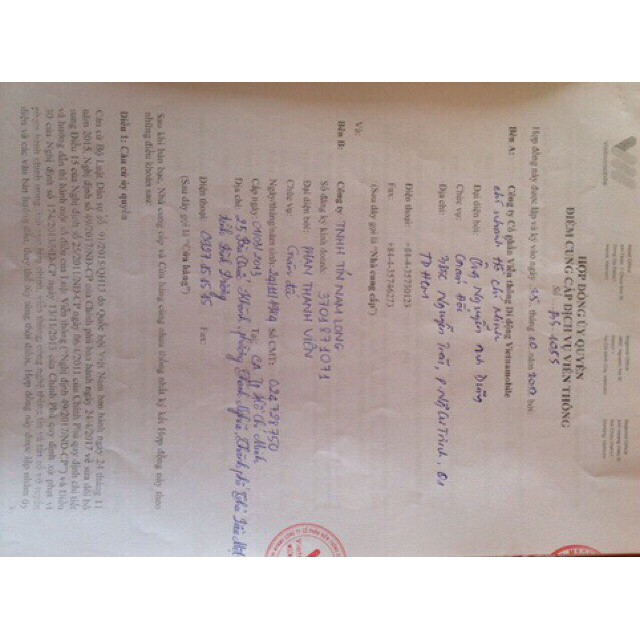 HỢP ĐỒNG ỦY QUYỀN
ĐIỂM CUNG CẤP DỊCH VỤ VIỄN THÔNG
Số
Hợp đồng này được lập và ký vào ngày 25 tháng 10 năm 2017 bởi:
Bên A: Công ty Cổ phần Viễn thông Di động Vietnamobile
chi nhánh Hồ Chí Minh
Đại diện bởi: Ông Nguyễn Anh Dũng
Chức vụ: Giám Đốc
Địa chỉ: Nguyễn Trãi, P. Ng Cư Trinh, Q1
TP HCM
Điện thoại: +84-4-35730123
Fax: +84-4-35746273
(Sau đây gọi là "Nhà cung cấp")
Và:
Bên B: Công ty TNHH TÍN NAM LONG
Số đăng ký kinh doanh: 3701871071
Đại diện bởi: PHAN THANH VIÊN
Chức vụ: Giám đốc
Ngày/tháng/năm sinh: Số CMT: 024798750
Cấp ngày: Tại: CA TP Hồ Chí Minh
Địa chỉ: 25 Bùi Quốc Khánh, phường Chánh Nghĩa, thành phố Thủ Dầu Một
tỉnh Bình Dương
Điện thoại: Fax:
(Sau đây gọi là "Cửa hàng")
Sau khi bàn bạc, Nhà cung cấp và Cửa hàng cùng nhau thống nhất ký kết Hợp đồng này theo
những điều khoản sau:
Điều 1: Căn cứ ủy quyền
Căn cứ Bộ Luật Dân sự số 91/2015/QH13 do Quốc hội Việt Nam ban hành ngày 24 tháng 11
năm 2015, Nghị định số 49/2017/NĐ-CP của Chính phủ ban hành ngày 24/4/2017 về sửa đổi bổ
sung Điều 15 của Nghị định số 25/2011/NĐ-CP ngày 06/4/2011 của Chính Phủ quy định chi tiết
và hướng dẫn thi hành một số điều của Luật Viễn thông ("Nghị định 49/2017/NĐ-CP") và Điều
30 của Nghị định số 174/2013/NĐ-CP ngày 13/11/2013 của Chính Phủ quy định xử phạt vi
phạm hành chính trong lĩnh vực bưu chính, viễn thông, công nghệ thông tin và tần số vô tuyến
điện và các văn bản hướng dẫn, thay thế sau từng thời điểm. Hợp đồng này được lập nhằm ủy